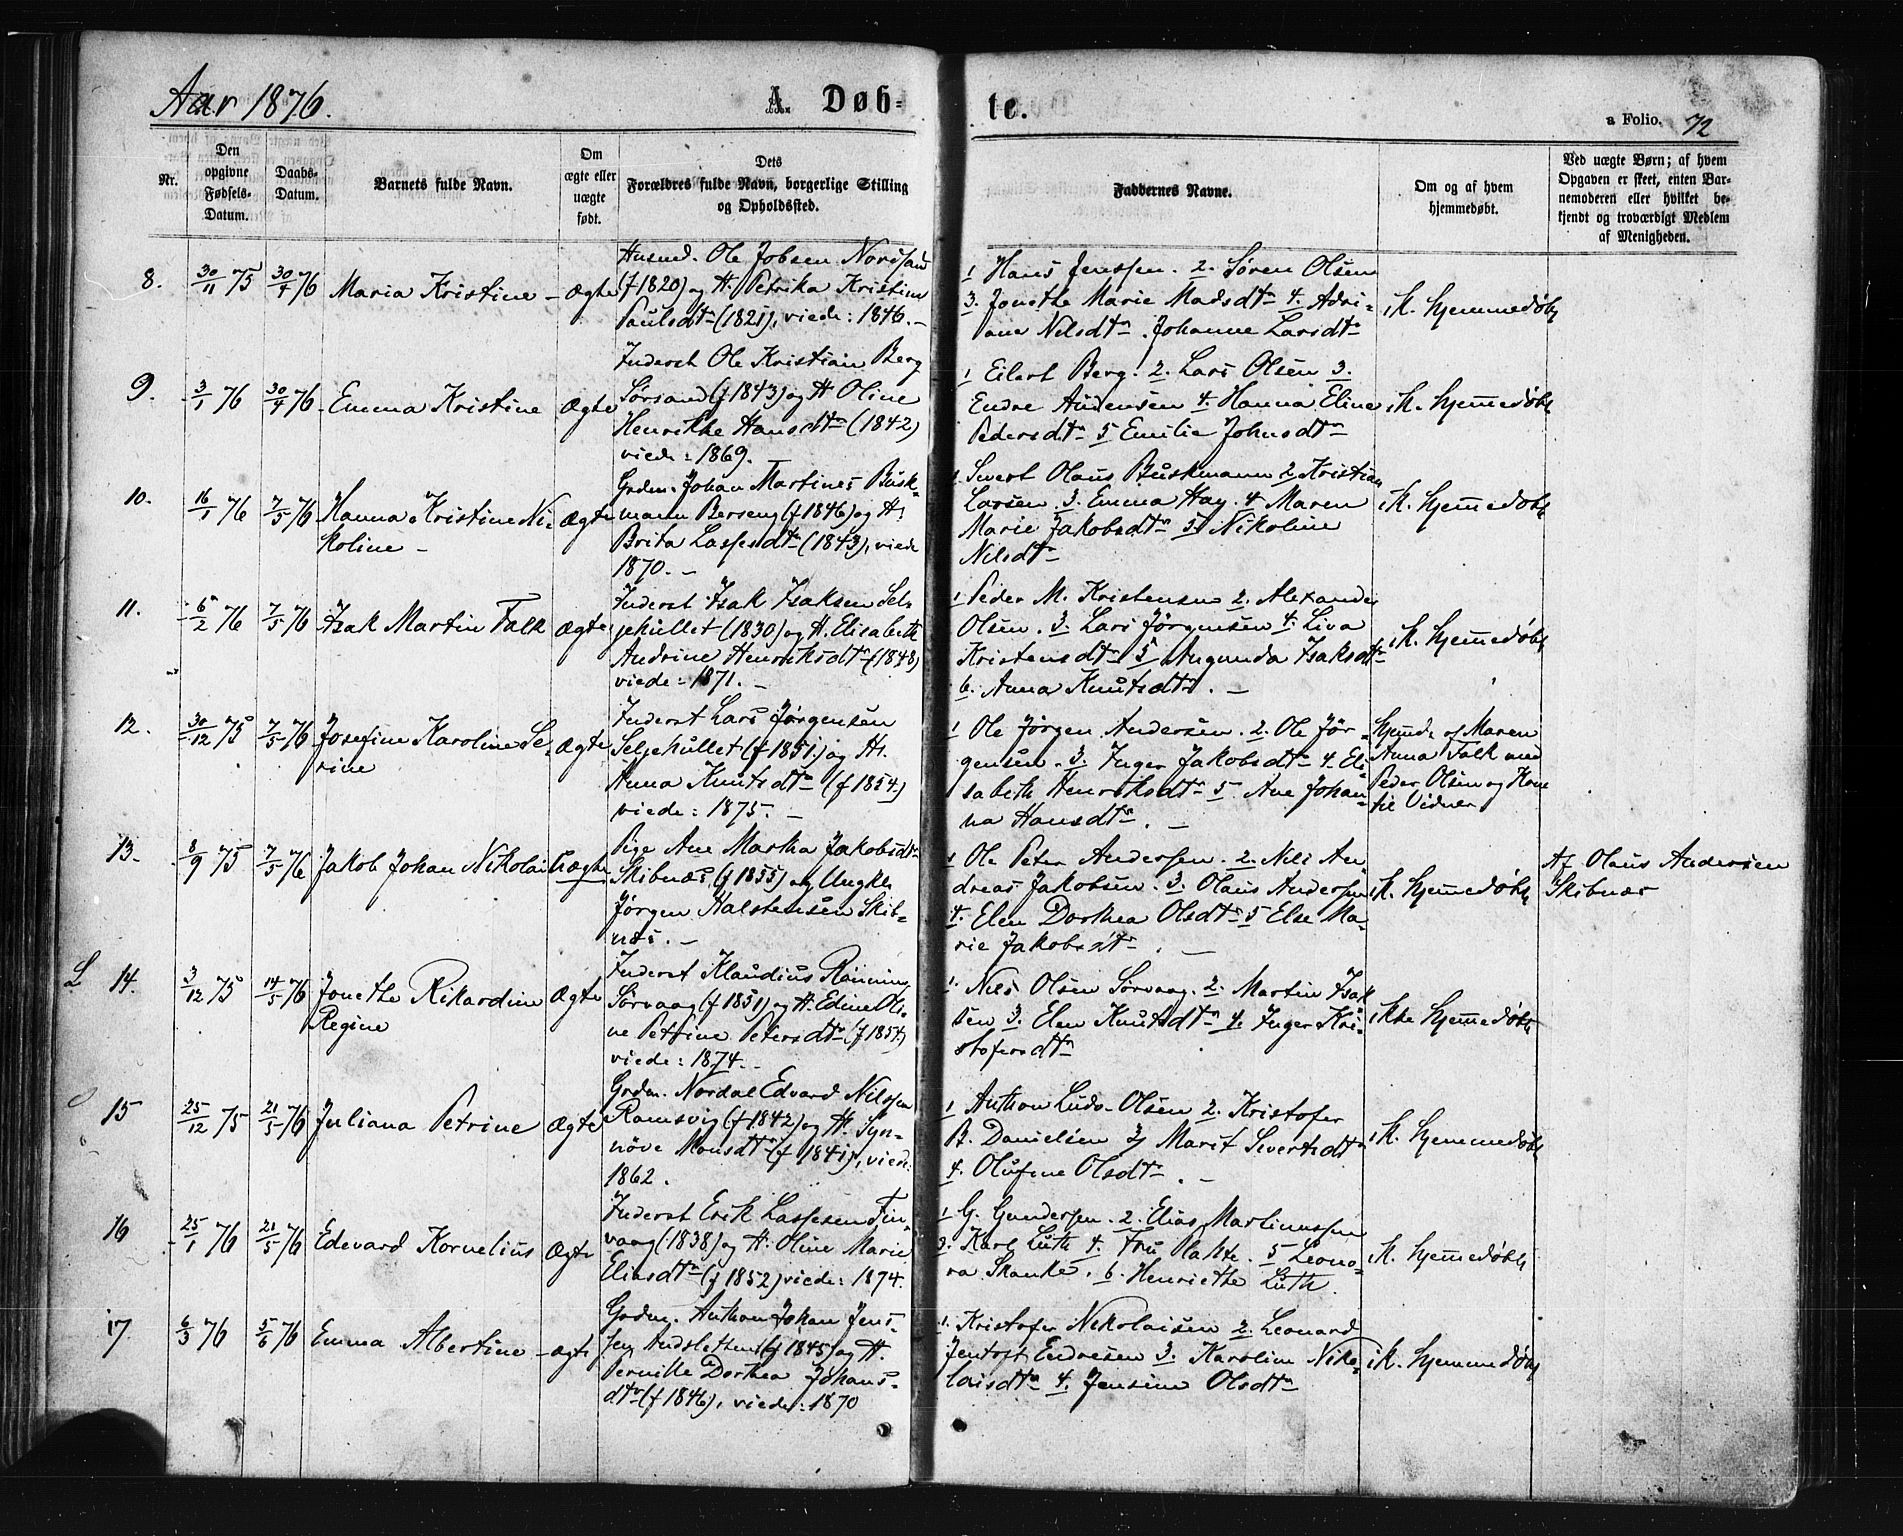 Aar 1876.
A. Døb-
te.
a Folio. 72
Nr.
Den opgivne Fødsels-Datum.
Daabs-Datum.
Barnets fulde Navn.
Om ægte eller uægte født.
Dets Forældres fulde Navn, borgerlige Stilling og Opholdssted.
Faddernes Navne.
Om og af hvem hjemmedøbt.
Ved uægte Børn; af hvem Opgaven er skeet, enten Barnemoderen eller hvilket bekjendt og troværdigt Medlem af Menigheden.
8. 30/11 75 30/4 76 Maria Kristine - Ægte
Husmd. Ole Jobsen Norsand
(f 1820) og H. Petrika Kristine
Paulsdtr (1821), viede: 1846. -
1 Hans Jenssen. 2. Søren Olsen
3. Jonethe Marie Madsdtr 4. Adri-
ane Nilsdtr. Johanne Larsdtr
ik. hjemmedøbt
9. 3/1 76 30/4 76 Emma Kristine Ægte
Inderst Ole Kristian Berg
Sørsand (f 1843) og H Oline
Henrikke Hansdtr (1842)
viede: 1869.
1 Eilert Berg. 2. Lars Olsen 3.
Endre Andersen 4. Hanna Eline
Pedersdtr 5 Emilie Johnsdtr
ik. hjemmedøbt
10. 16/1 76 7/5 76 Hanna Kristine Ni-
koline - Ægte
Grdm. Johan Martines Busk-
mann Berseng (f 1846) og H.
Brita Lassesdtr (1843), viede
1870. -
1. Sivert Olaus Buskmann 2. Kristian
Larsen. 3. Emma Hay. 4 Maren
Marie Jakobsdtr 5. Nikoline
Nilsdtr
ik. hjemmedøbt
11. 6/2 76 7/5 76 Isak Martin Falk Ægte
Inderst Isak Isaksen Sel-
jehullet (1830) og H. Elisabeth
Andrine Henriksdtr (f 1848)
viede: 1871. -
1 Peder M. Kristensen 2. Alexander
Olsen. 3. Lars Jørgensen 4. Liva
Kristensdtr 5 Angunda Isaksdtr
6. Anna Knutsdtr. -
ik. hjemmedøbt
12. 30/12 75 7/5 76 Josefine Karoline Se-
rine Ægte
Inderst Lars Jørgensen
Seljehullet (f 1851) og H.
Anna Knutsdtr (f 1854.)
viede: 1875. -
1 Ole Jørgen Andersen. 2. Ole Jør-
gensen. 3. Inger Jakobsdtr 4. Eli-
sabeth Henriksdtr 5. Ane Johan-
na Hansdtr. -
Hjemd. af Maren
Anna Falk med
Peder Olsen og Kone
til Vidner
13. 8/9 75 7/5 76 Jakob Johan Nikolai Uægte
Pige Ane Martha Jakobsdtr
Skibnæs, (f 1855) og Ungkl.
Jørgen Halstensen Skib-
næs. -
1 Ole Peter Andersen. 2. Nils An-
dreas Jakobsen. 3. Olaus Andersen
4. Elen Dorthea Olsdtr 5 Else Ma-
rie Jakobsdtr. -
ik. hjemmedøbt
Af Olaus Andersen
Skibnæs
L 14. 3/12 75 14/5 76 Jonethe Rikardine
Regine Ægte
Inderst Klaudius Rönning
Sørvaag (f 1851) og H. Edine Oli-
ne Petrine Petersdtr (f 1854)
viede: 1874. -
1. Nils Olsen Sørvaag. 2. Martin Isak
sen 3. Elen Knutsdtr 4. Inger Kri-
stofersdtr
ikke hjemmedøbt
15 25/12 75 21/5 76 Juliana Petrine Ægte
Grdm. Nordal Edvard Nilssen
Ramsvig (f 1842) og H. Syn-
növe Monsdtr (f 1841), viede:
1862.
1 Anthon Ludv. Olsen 2. Kristofer
B. Danielsen 3. Marit Sivertsdtr
4. Olufine Olsdtr. -
ik. hjemmedøbt
16 25/1 76 21/5 76 Edevard Kornelius Ægte
Inderst Erik Lassesen Fin-
vaag (1838) og H. Oline Marie
Eliasdtr (f 1852) viede: 1874.
1 G. Gundersen. 2. Elias Martinussen
3. Karl Luth 4. Fru 5 Leono-
ra Skanke. 6. Henriethe Luth.
ik. hjemmedøbt
17. 6/3 76 5/6 76 Emma Albertine - ægte
Grdm. Anthon Johan Jens-
sen Andsletten (f 1845) og H.
Pernille Dorthea Johans-
dtr (f 1846), viede: 1870
1. Kristofer Nikolaisen 2. Leonard
Jentoft Endresen 3. Karoline Niko-
laisdtr 4. Jensine Olsdtr
ik. hjemmedøbt